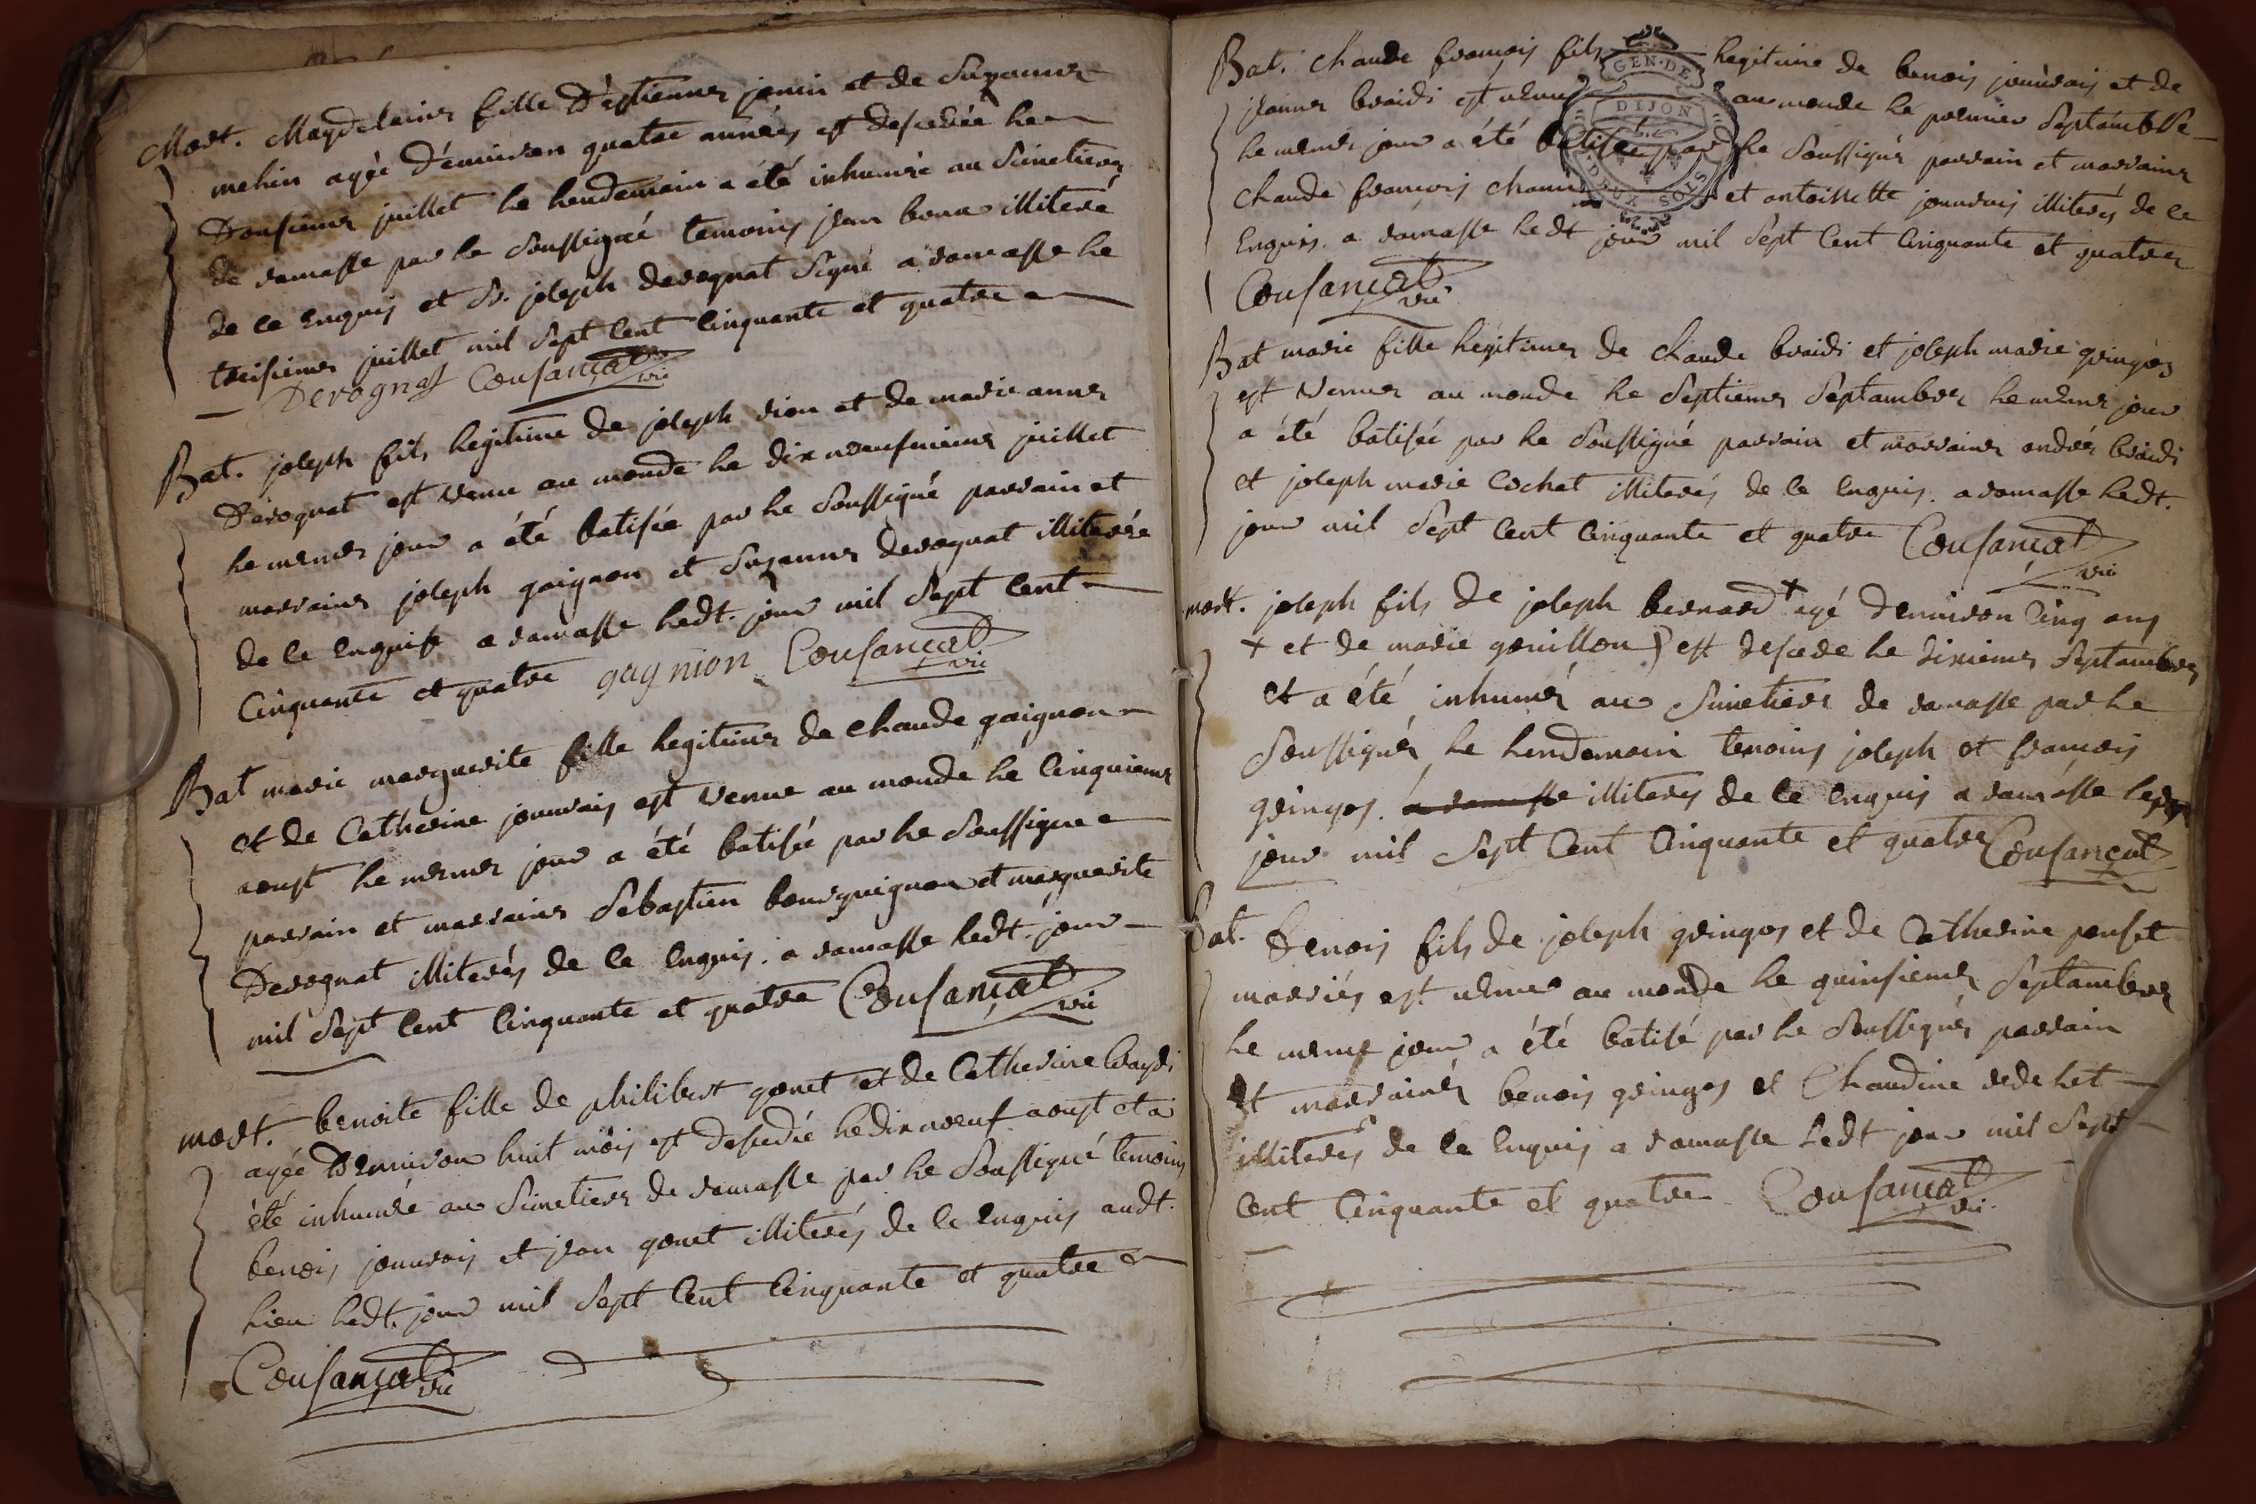 Mort. Magdelaine fille D'estienne janin et de Suzanne
mehin agée d'environ quatre années est desedée le
Dousieme juillet le lendemain a été inhumée au Simetiere
de ramasse par le Soussigné temoins jean
de ce enquis et Sr. joseph derognat Signé a ramasse le
treisieme juillet mil Sept Cent Cinquante et quatre
Derognat Cousançat vic
Bat. joseph fils legitime de joseph rion et de marie anne
Derognat est venu au monde le dix neufvieme juillet
le meme jour a été batisée par le Soussigné parrain et
marraine joseph gaignon et Suzanne derognat illiterée
de ce enquise a ramasse ledt. jour mil Sept Cent
Cinquante et quatre gagnion Cousançat vic
Bat marie marguerite fille legitime de Claude gaignon
et de Catherine jouvrais est venue au monde le Cinquieme
aoust le meme jour a été batisée par le Soussigné
parrain et marraine Sebastien bourguignon et marguerite
Derognat illiterés de ce enquis. a ramasse ledt. jour
mil Sept Cent Cinquante et quatre Cousançat vic
mort. benoite fille de philibert gonet et de Catherine braydi
agée D'environ huit mois est desedée le dix neuf aoust et a
été inhumée au Simetiere de ramasse par le Soussigné temoins
benois jouvrois et jean gonet illiterés de ce enquis audt.
lieu ledt. jour mil Sept Cent Cinquante et quatre
Cousançat vic
Bat. Claude francois fils legitime de benois jouvrais et de
jeanne braidi est venu au monde le premier Septambre
le meme jour a été batisée par le Soussigné parrain et marraine
Claude francois et antoinette jouvrais illiterés de ce
Enquis. a ramasse ledt jour mil Sept Cent Cinquante et quatre
Cousançat vic
GEN. DE
DIJON
DEUX SOLS
Bat marie fille legitime de Claude braidi et joseph marie gringos
est venue au monde le Septieme Septambre le meme jour
a été batisée par le Soussigné parrain et marraine andré braidi
et joseph marie cochet illiterés de ce enquis. a ramasse ledt.
jour mil Sept Cent Cinquante et quatre Cousançat vic
mort. joseph fils de joseph bernard + agé d'environ Cinq ans
+ et de marie gouillon) est desede le dixieme Septambre
et a été inhumé au Simetiere de ramasse par le
Soussigné le lendemain temoins joseph et francois
gringos. a ramasse illiterés de ce enquis a ramasse ledt
jour mil Sept Cent Cinquante et quatre Cousançat
Bat. benois fils de joseph gringos et de Catherine
mariés est venu au monde le quinsieme Septambre
le meme jour a été batisé par le Soussigné parrain
et marraine benois gringos et Claudine
illiterés de ce Enquis a ramasse ledt jour mil Sept
Cent Cinquante et quatre Cousançat vic.